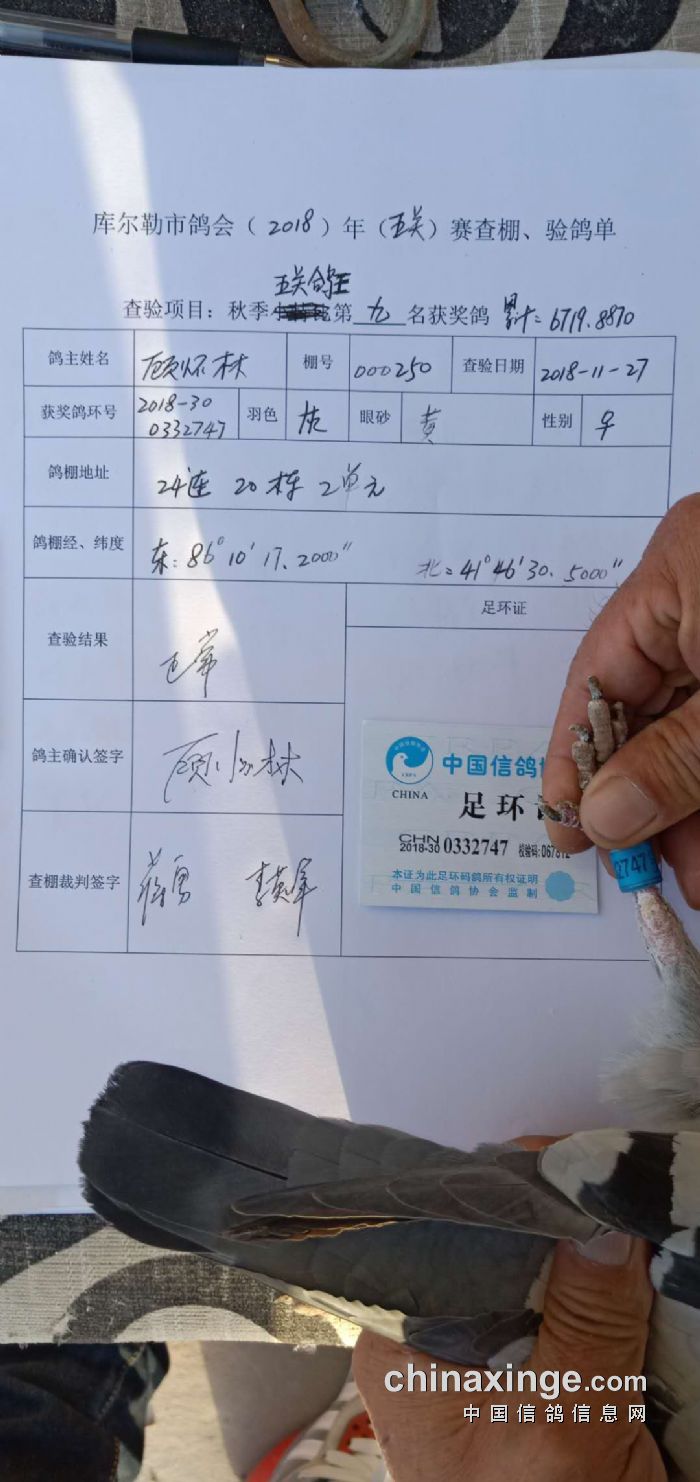 库尔勒市鸽会（2018）年（五关）赛查棚、验鸽单
五关鸽王
查验项目：秋季 第 九 名获奖鸽 累计=6719.8870
鸽主姓名 顾怀林 棚号 000250 查验日期 2018-11-27
获奖鸽环号 2018-30 0332747 羽色 灰 眼砂 黄 性别 ♀
鸽棚地址 24连 20栋 2单元
鸽棚经、纬度 东：86°10′17.2000″ 北：41°46′30.5000″
查验结果 正常
足环证
鸽主确认签字 顾怀林
查棚裁判签字
中国信鸽协
CHINA
足环
CHN
2018-30 0332747 校验码:067812
本证为此足环码鸽所有权证明
中国信鸽协会监制
2747
chinaxinge.com
中国信鸽信息网